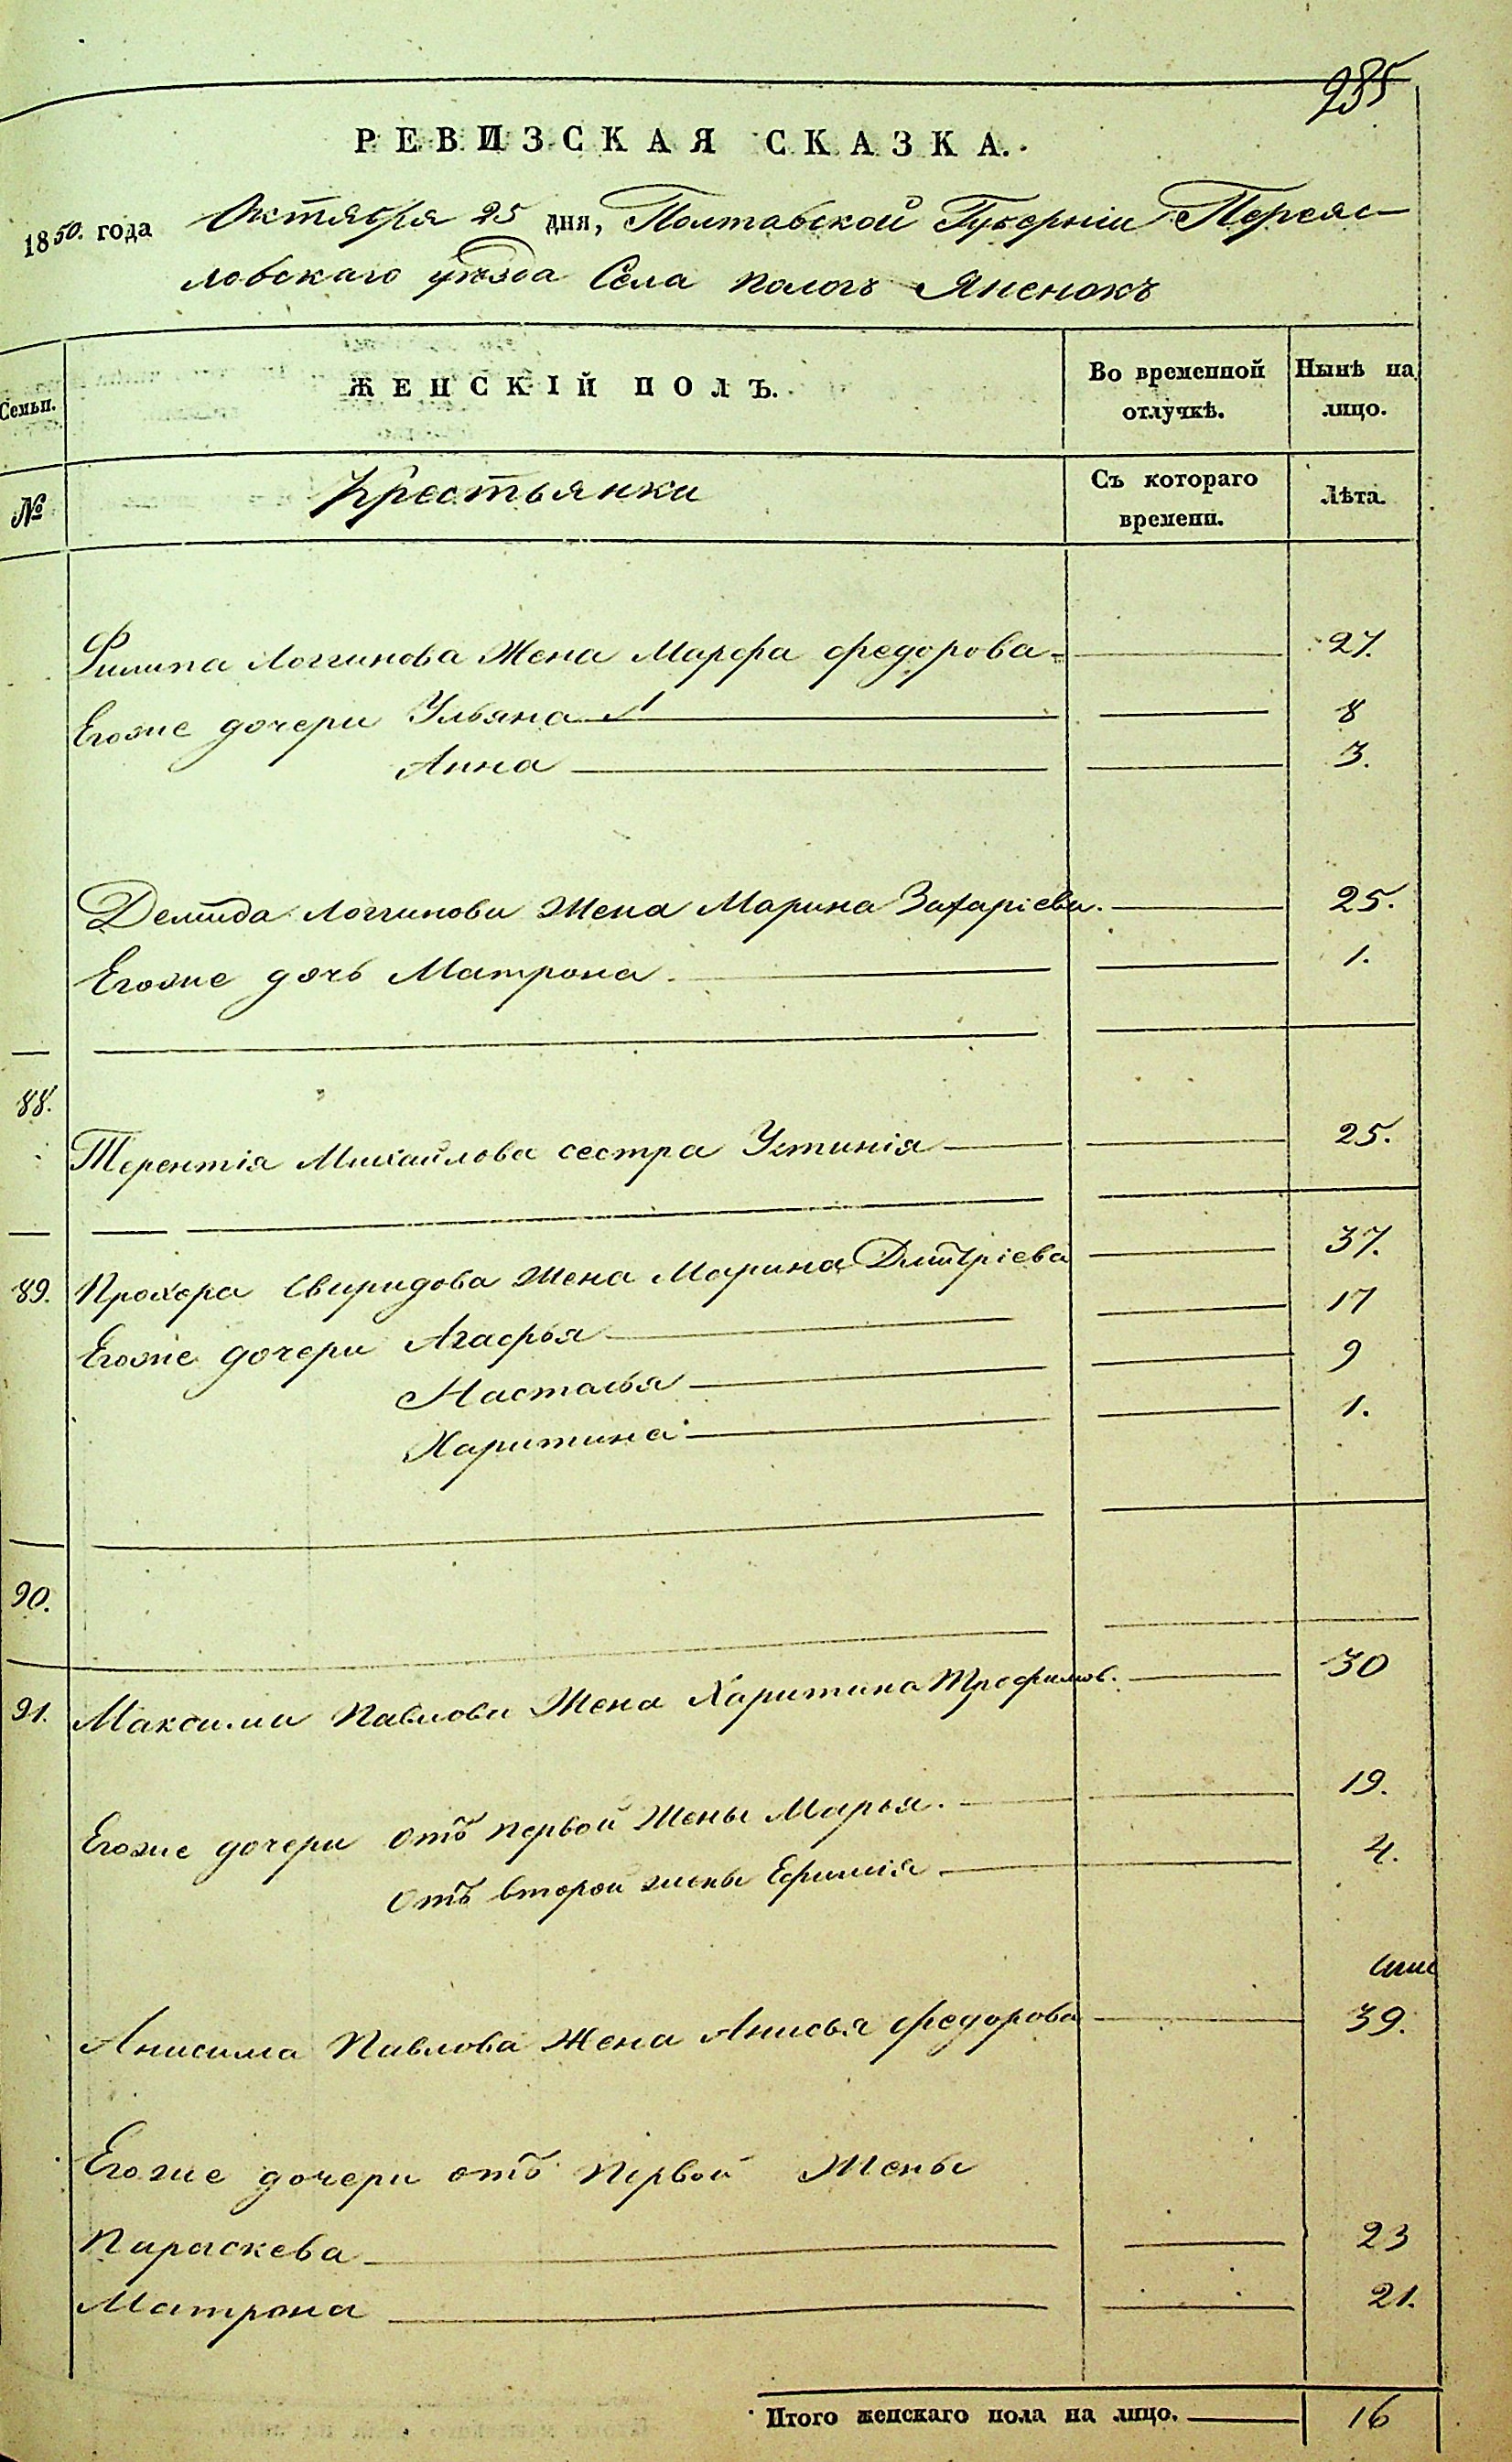 235
РЕВИЗСКАЯ СКАЗКА.
1850. года Октября 25 дня, Полтавской Губерніи Переяс-
ловскаго уѣзда Села Пологъ Яненокъ
Семьи. ЖЕНСКІЙ ПОЛЪ. Во временной отлучкѣ. Нынѣ на лицо.
№ Крестьянки Съ котораго времени. Лѣта.
Филипа Логгинова Жена Марфа Федорова 27.
Егоже дочери Ульяна 8
Анна 3.
Демида Логгинова Жена Марина Захаріева. 25.
Егоже дочь Матрона 1.
88.
Терентія Михайлова сестра Устинія 25.
89. Прохора Свиридова Жена Марина Дмитріева 37.
Егоже дочери Агафья 17
Настасья 9
Харитина 1.
90.
91. Максима Павлова Жена Харитина Трофимов. 30
Егоже дочери отъ первой Жены Марья. 19.
Отъ второй жены Ефимія 4.
Анисима Павлова Жена Анисья Федорова 39.
Егоже дочери отъ первой Жены
Параскева 23
Матрона 21.
Итого женскаго пола на лицо. 16